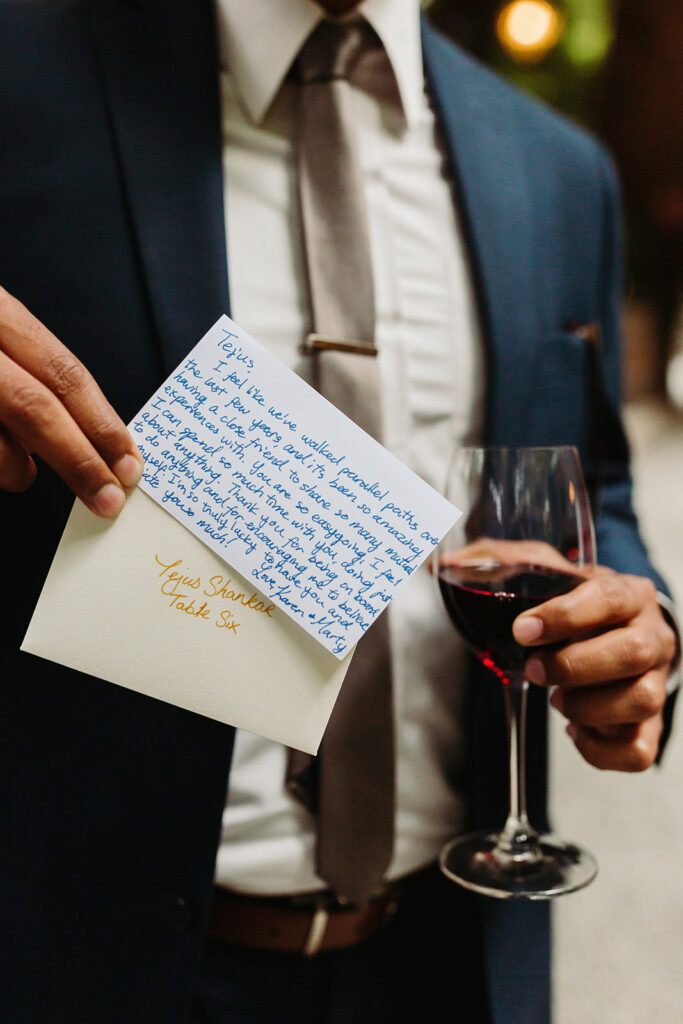 Tejus,
I feel like we've walked parrallel paths over
the last few years, and it's been so amazing
having a close friend to share so many mutual
experiences with. You are so easygoing, I feel
I can spend so much time with you doing just
about anything. Thank you for being on board
to do anything and for encouraging me to believe
myself. I'm so truly lucky to have you and
you so much!
Love, Karen + Marty
Tejus Shankar
Table Six